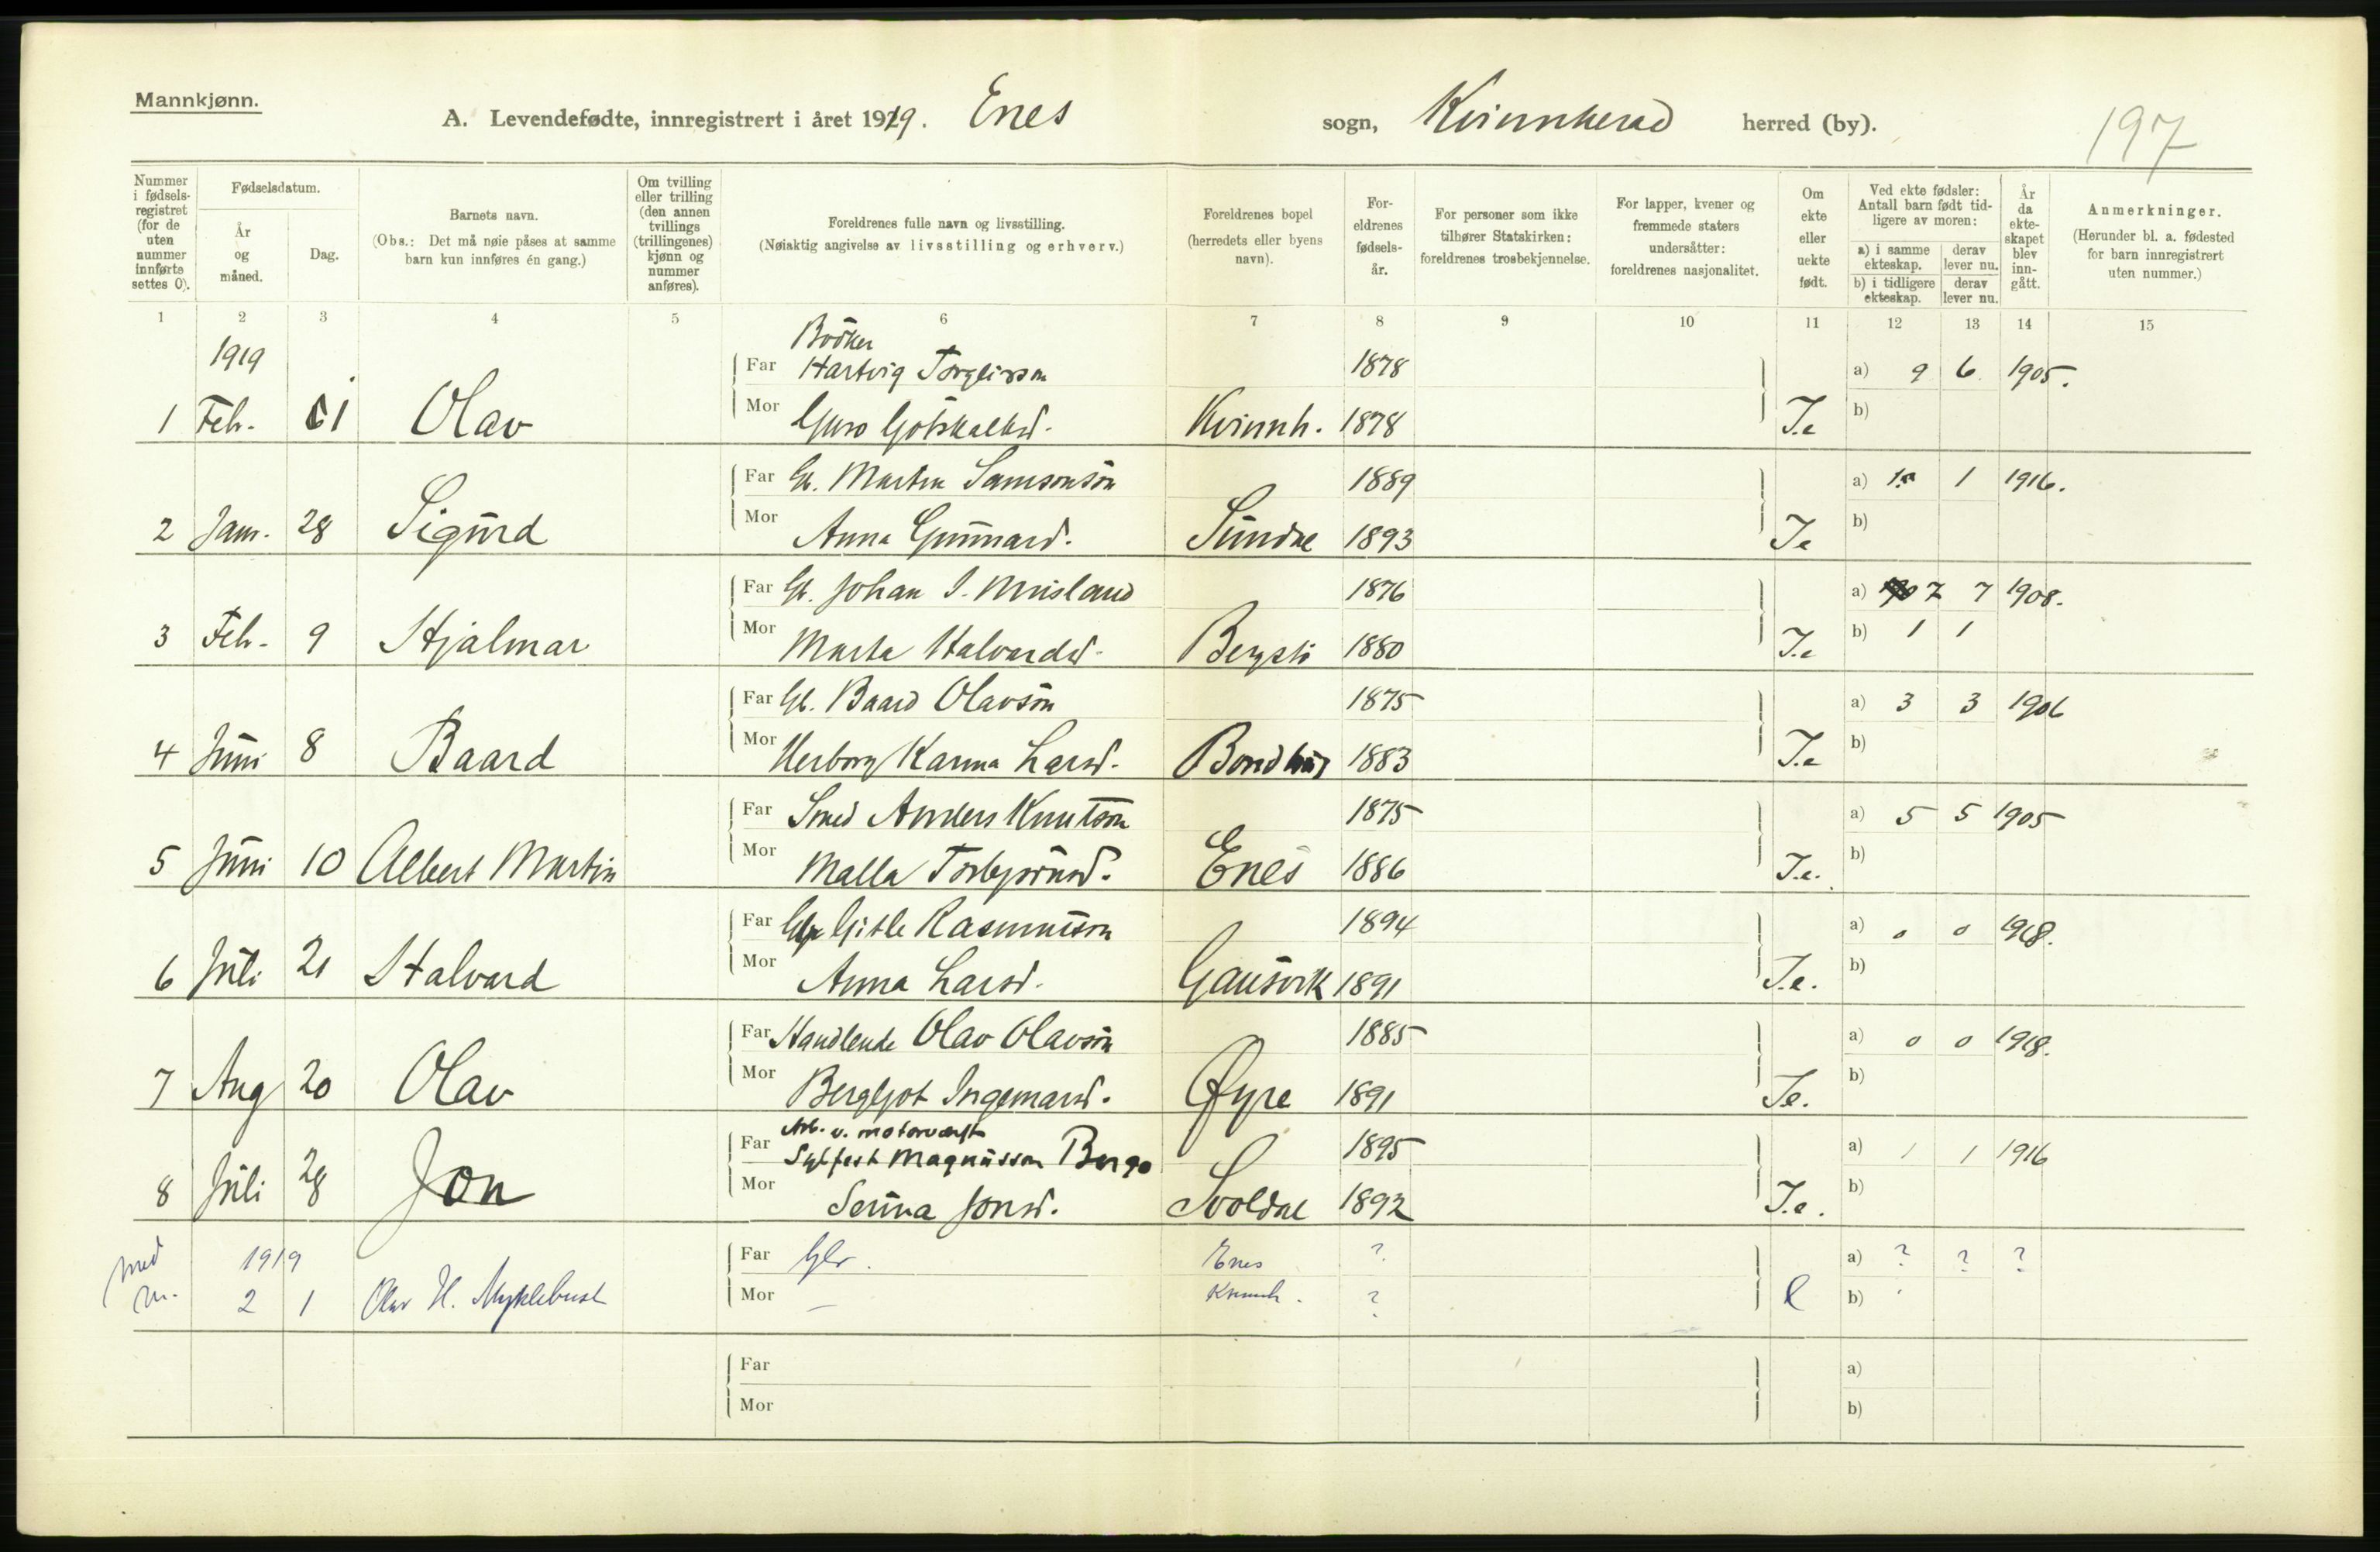 Mannkjønn.
A. Levendefødte, innregistrert i året 1919. Enes sogn, Kvinnherad herred (by).
197
Nummer i fødsels-registret (for de uten nummer innførte settes 0).
Fødselsdatum.
År og måned.
Dag.
Barnets navn.
(Obs.: Det må nøie påses at samme barn kun innføres én gang.)
Om tvilling eller trilling (den annen tvillings (trillingenes) kjønn og nummer anføres).
Foreldrenes fulle navn og livsstilling.
(Nøiaktig angivelse av livsstilling og erhverv.)
Foreldrenes bopel (herredets eller byens navn).
For-eldrenes fødsels-år.
For personer som ikke tilhører Statskirken: foreldrenes trosbekjennelse.
For lapper, kvener og fremmede staters undersåtter: foreldrenes nasjonalitet.
Om ekte eller uekte født.
Ved ekte fødsler: Antall barn født tid-ligere av moren:
a) i samme ekteskap. derav lever nu.
b) i tidligere ekteskap. derav lever nu.
År da ekte-skapet blev inn-gått.
Anmerkninger.
(Herunder bl. a. fødested for barn innregistrert uten nummer.)
1 2 3 4 5 6 7 8 9 10 11 12 13 14 15
1919
Far Hartvig 1878 a) 9 6 1905.
1 Feb. 1 Olav Mor Kvinnh. 1878 J.e b)
Far Gb. Martin Samsonson 1889 a) 1 1916.
2 Jan. 28 Sigurd Mor Anna Gunnarsd. Sundal 1893 J.e b)
Far Gb. Johan 1876 a) 7 7 1908.
3 Feb. 9 Hjalmar Mor Marta Halvardsd. 1880 J.e b) 1 1
Far Gb. Baard Olavson 1875 a) 3 3 1906
4 Juni 8 Baard Mor Herborg Karina Larsd. Bondhus 1883 J.e b)
Far Smed Anders Knutson 1875 a) 5 5 1905
5 Juni 10 Albert Martin Mor Malla Torbjørnsd. Enes 1886 J.e. b)
Far Gisle Rasmusson 1894 a) 0 0 1918.
6 Juli 21 Halvard Mor Anna Larsd. Gausvik 1891 J.e. b)
Far Handlende Olav Olavson 1885 a) 0 0 1918.
7 Aug 20 Olav Mor Bergljot Ingemarsd. Øyre 1891 Je. b)
Arb. v. motorverft
Far Sylfest Magnusson 1895 a) 1 1 1916
8 Juli 28 Jon Mor Serina Jonsd. 1892 J.e. b)
1919 Far Enes ? a) ? ? ?
2 1 Olav H. Myklebust Mor — Kvinnh. ? e b)
Far a)
Mor b)